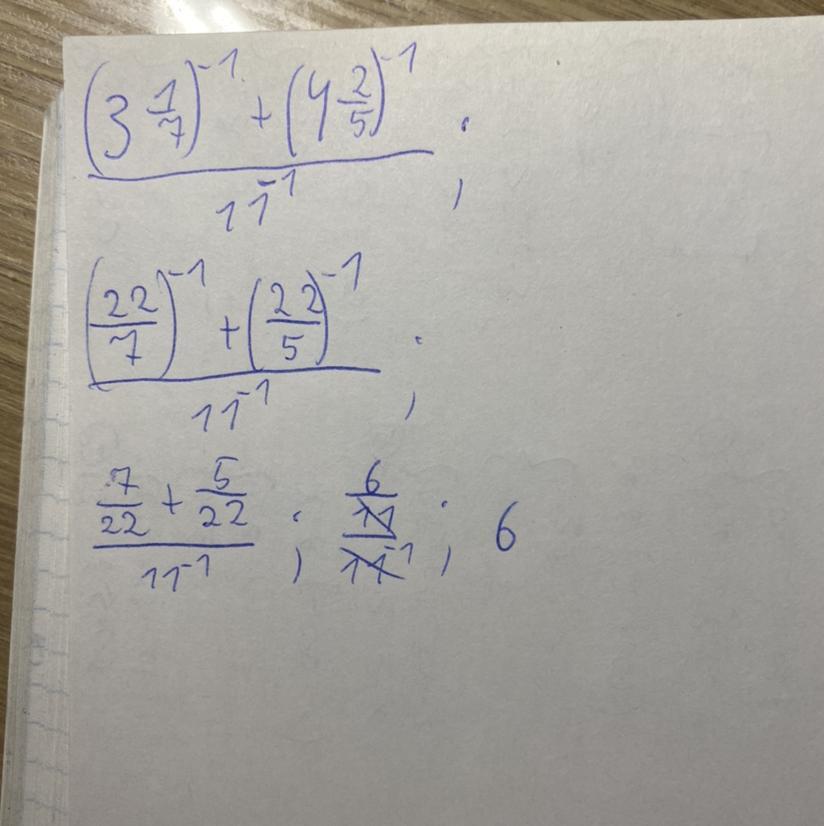 \frac{\left(3\frac{1}{7}\right)^{-1} + \left(4\frac{2}{5}\right)^{-1}}{11^{-1}} ;
\frac{\left(\frac{22}{7}\right)^{-1} + \left(\frac{22}{5}\right)^{-1}}{11^{-1}} ;
\frac{\frac{7}{22} + \frac{5}{22}}{11^{-1}} ; \frac{\frac{6}{11}}{11^{-1}} ; 6